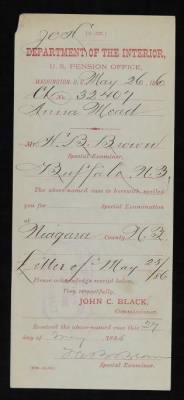 DEPARTMENT OF THE INTERIOR,
U. S. PENSION OFFICE,
WASHINGTON, D. C. May 26, 1886
Ct No. 32407
Anna Mead
Mr. W. B. Brown
Special Examiner.
Buffalo N.Y.
The above-named case is herewith mailed
you for Special Examination
at
Niagara County, N.Y.
Letter of May 25/86
Please acknowledge receipt below.
Very respectfully,
JOHN C. BLACK,
Commissioner.
Received the above-named case this 27
day of May 1886
Special Examiner.